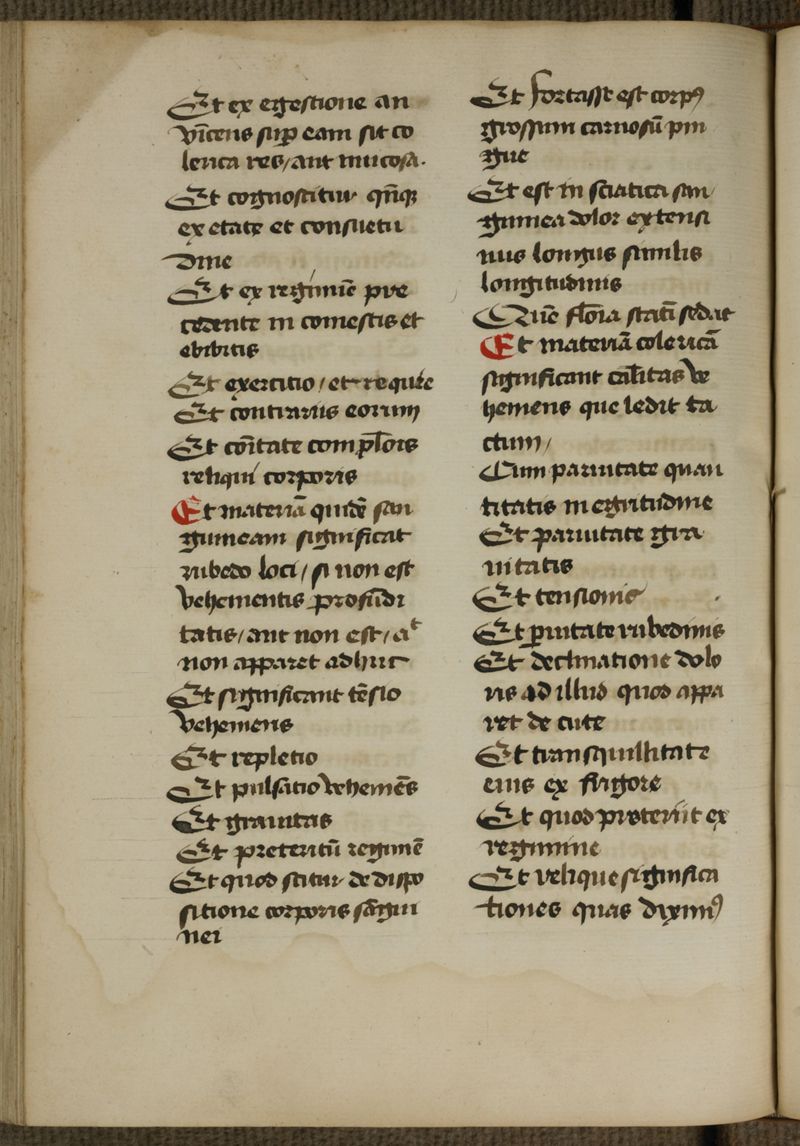 Et ex egestione an
vīcens sup eam sit co
lerica res/aut mucosa.
Et cognoscitur qn̄qꝫ
ex etate et consuetu
dine
Et ex regimīe pre
cedente in comestis et
ebibitis
Et exercitio/et requie
Et contrariis eorum
Et cōitate compl̄ōis
reliqui corporis
Et materiā quidē san
guineam significat
rubedo loci/si non est
vehementis profūdi
tatis/aut non est/aᵗ
non apparet adhuc
Et significant tēsio
vehemens
Et repletio
Et pulsatio vehemēs
Et grauitas
Et preteritū regimē
Et quod scitur de dispo
sitione corporis sāgui
nei
Et fortasse est corpꝰ
grossum carnosū pin
gue
Et est in sciatica san
guinea dolor extensi
uus longus similis
longitudinis
Quē fl̄oīa statī sedat
Et materiā colericā
significant cāl̄itas ve
hemens que ledit ta
ctum/
Cum paruitate quan
titatis in egritudine
Et paruitate gra
uitatis
Et tensionis
Et pruitate rubedinis
Et declinatione dolo
ris ad illud quod appa
ret de cute
Et tranquillitate
eius ex frigore
Et quod preteriit ex
regimine
Et relique significa
tiones quas diximꝰ